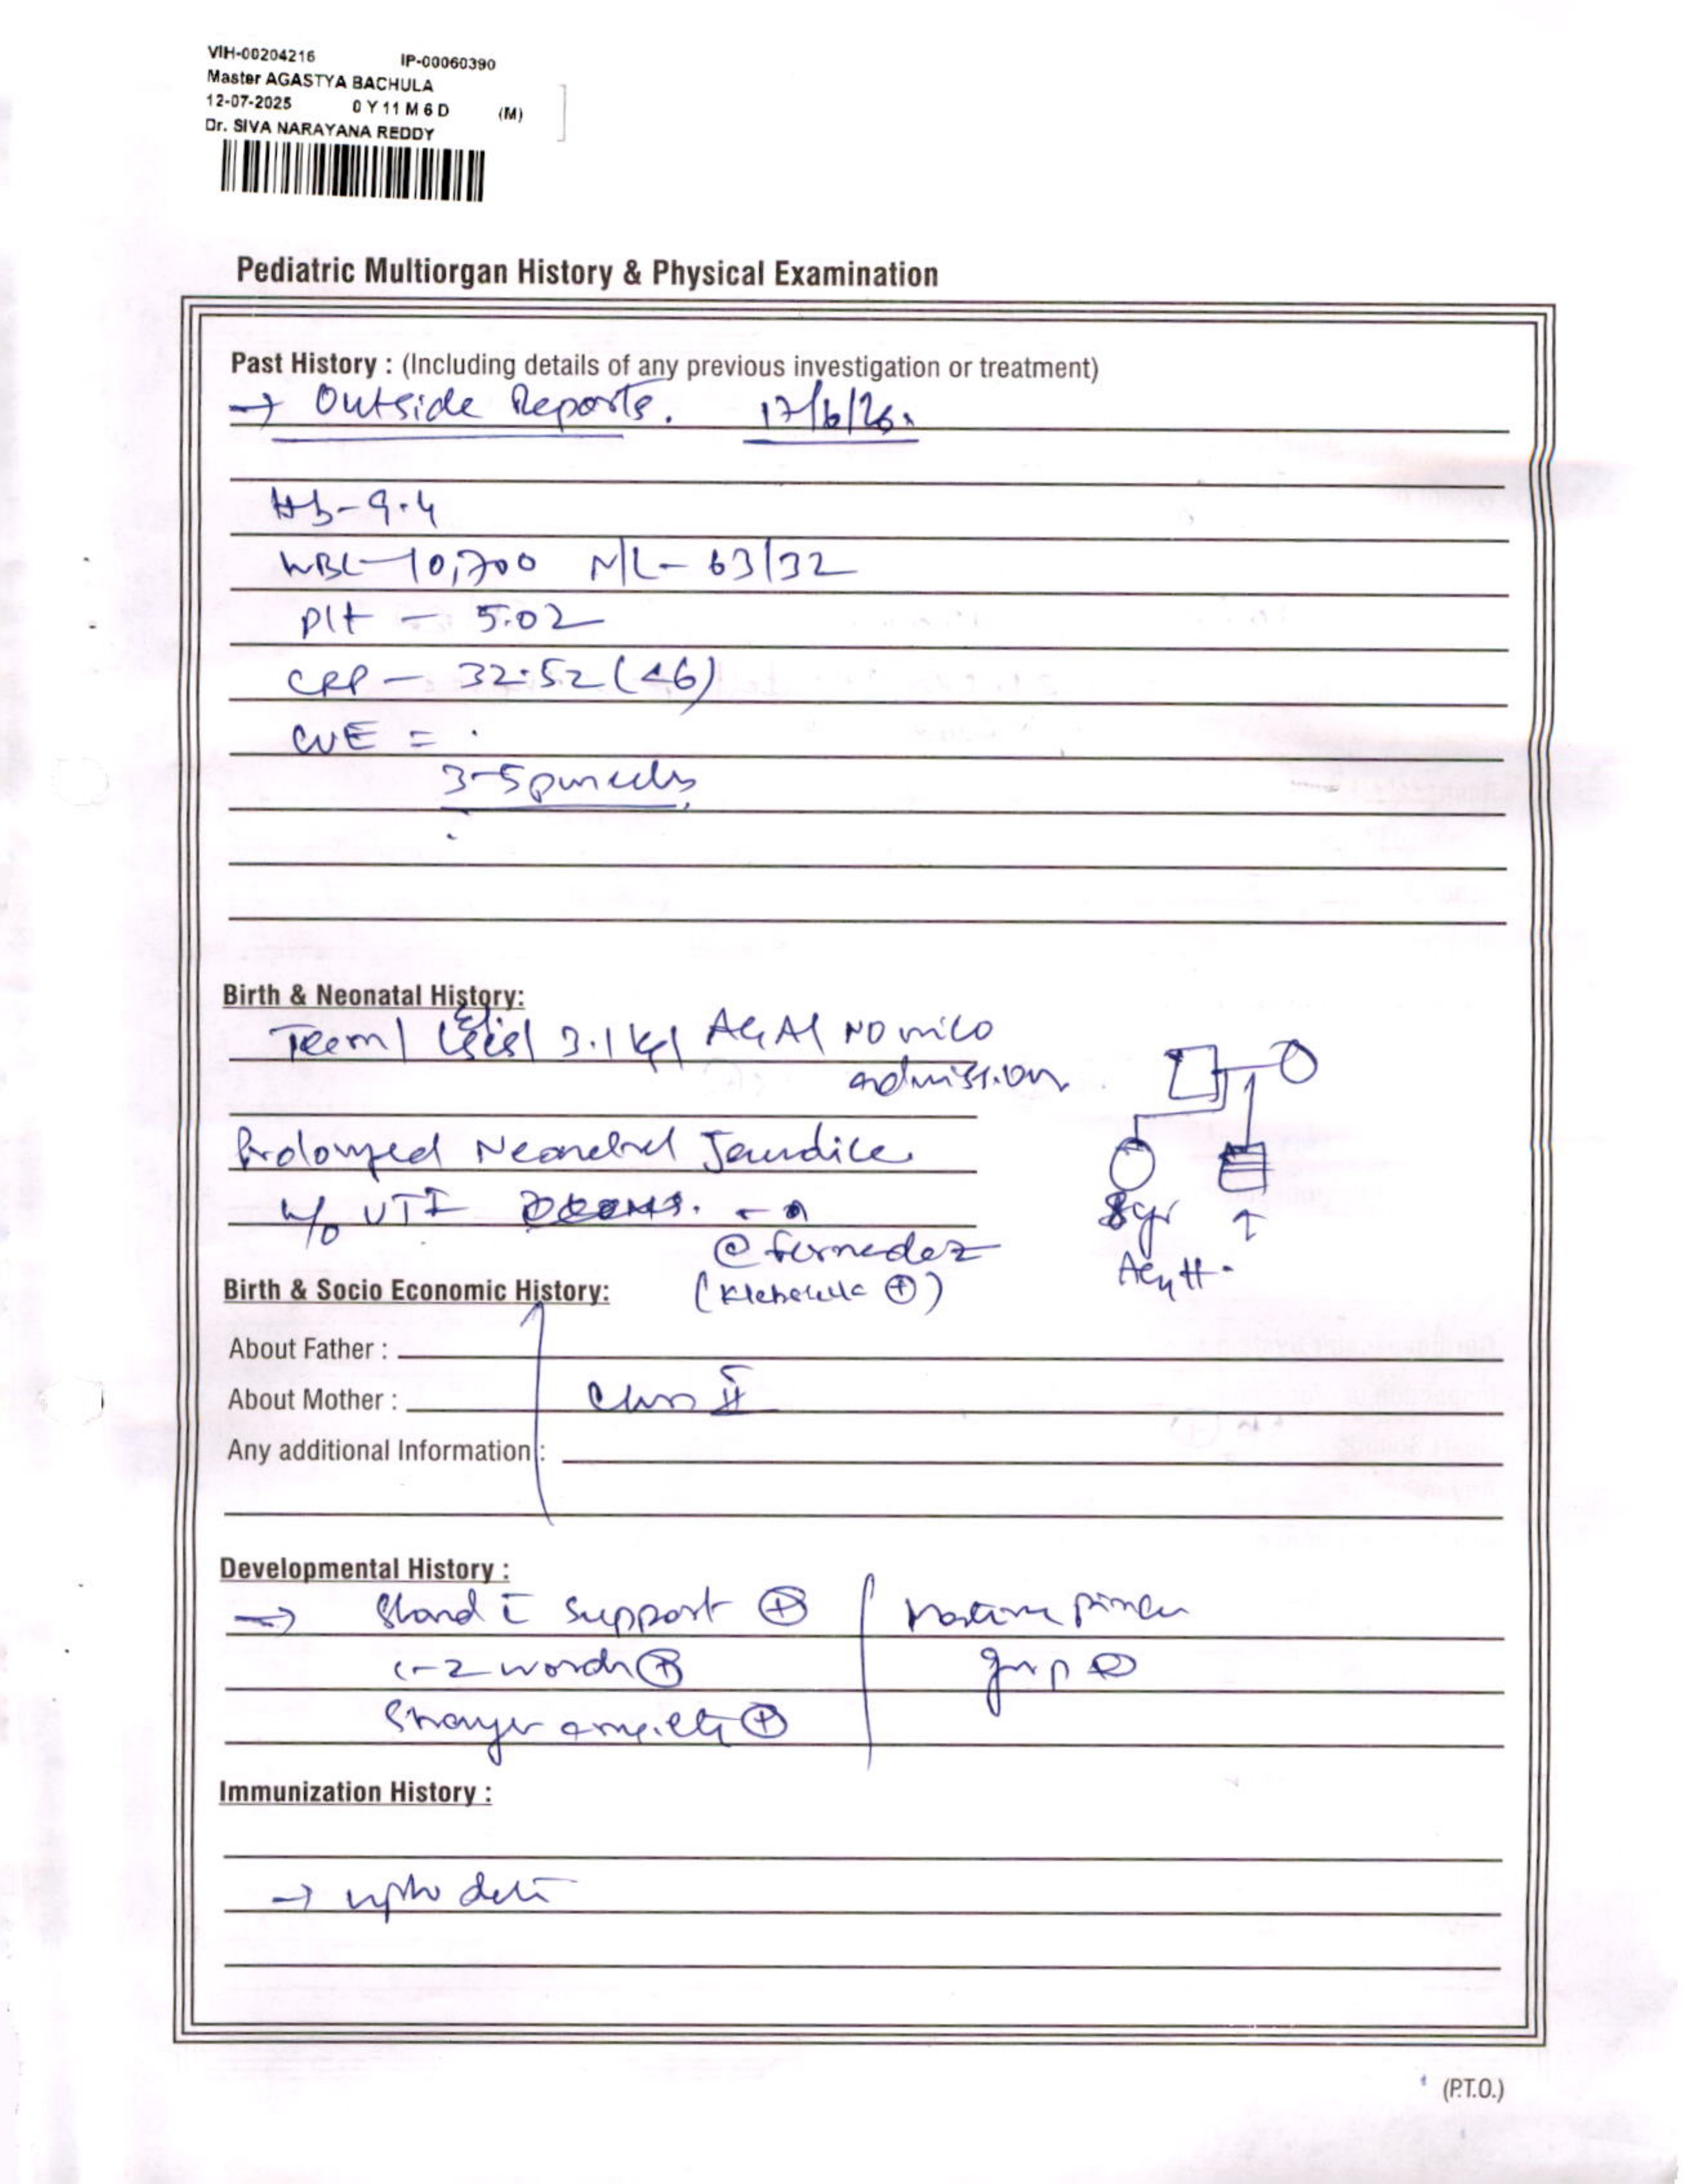 VIH-00204216 IP-00060390
Master AGASTYA BACHULA
12-07-2025 0 Y 11 M 6 D (M)
Dr. SIVA NARAYANA REDDY
Pediatric Multiorgan History & Physical Examination
Past History : (Including details of any previous investigation or treatment)
→ Outside Reports. 17/6/26.
Hb - 9.4
WBC - 10,700 N/L - 63/32
Plt - 5.02
CRP - 32.52 (<6)
CUE =
3-5 pus cells
Birth & Neonatal History:
Term / / 3.1 kg / AGA / NO NICU
admission
Prolonged Neonatal Jaundice
h/o UTI
@ fernedez
(Klebsiella +)
8yr
↑
Birth & Socio Economic History:
About Father :
About Mother : Class II
Any additional Information :
Developmental History :
→ Stand c̄ support ⊕ Mature pincer
1-2 words ⊕ grip ⊕
Stranger anxiety ⊕
Immunization History :
→ upto date
(P.T.O.)